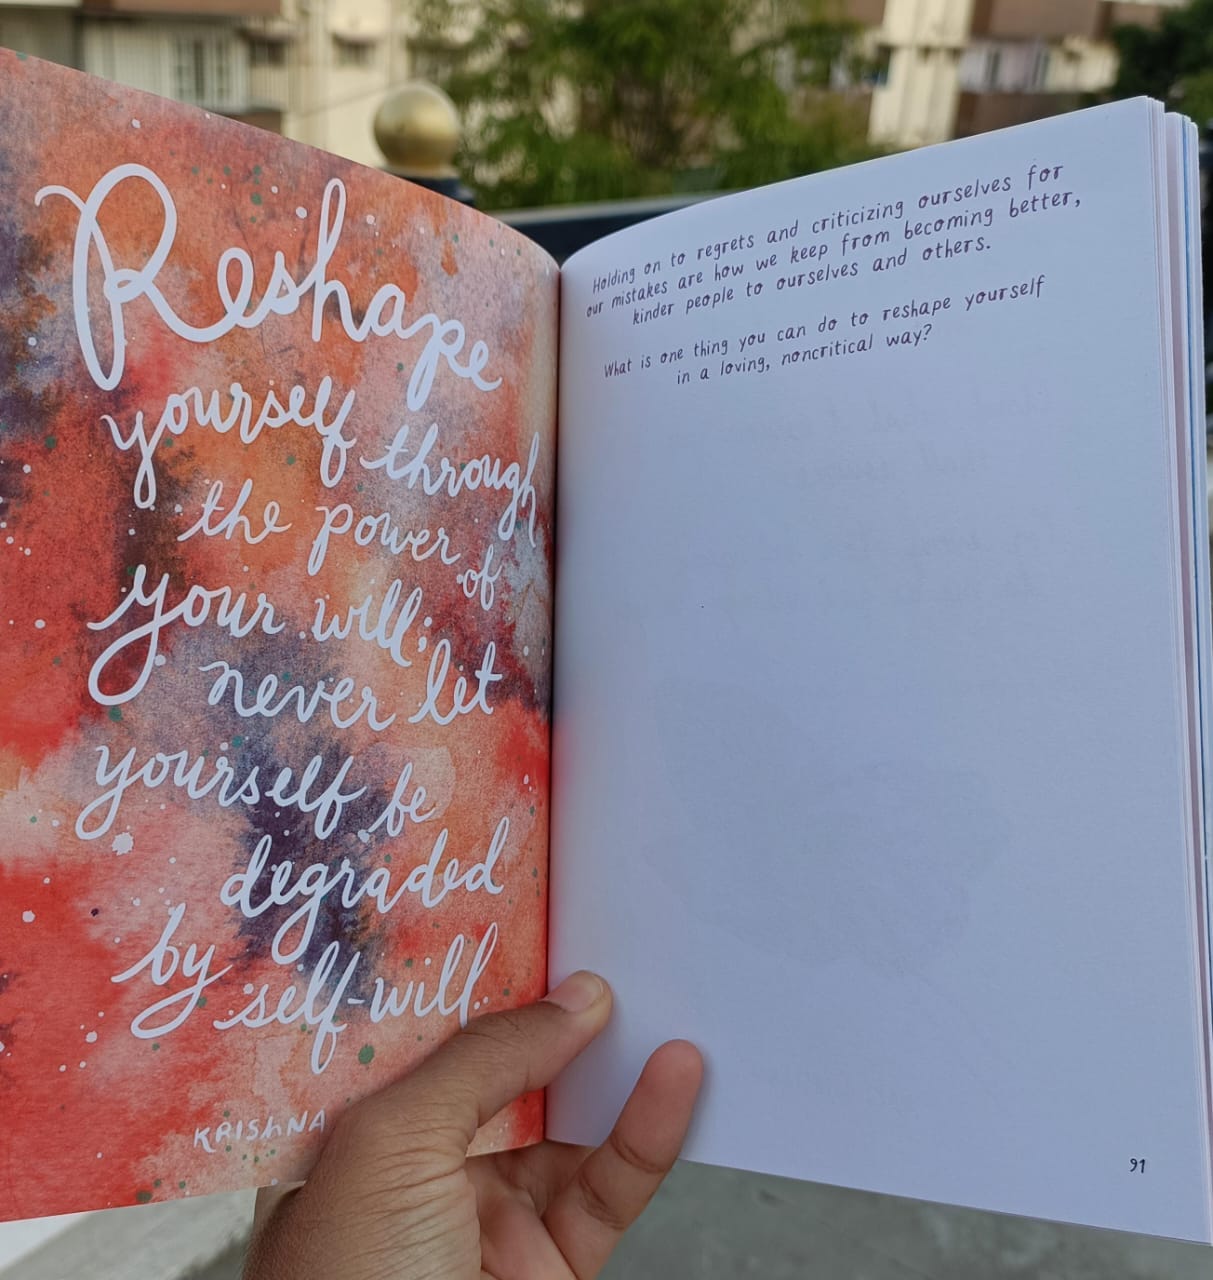 Reshape
yourself through
the power of
your will;
never let
yourself be
degraded
by self-will.
KRISHNA
Holding on to regrets and criticizing ourselves for
our mistakes are how we keep from becoming better,
kinder people to ourselves and others.
What is one thing you can do to reshape yourself
in a loving, noncritical way?
91